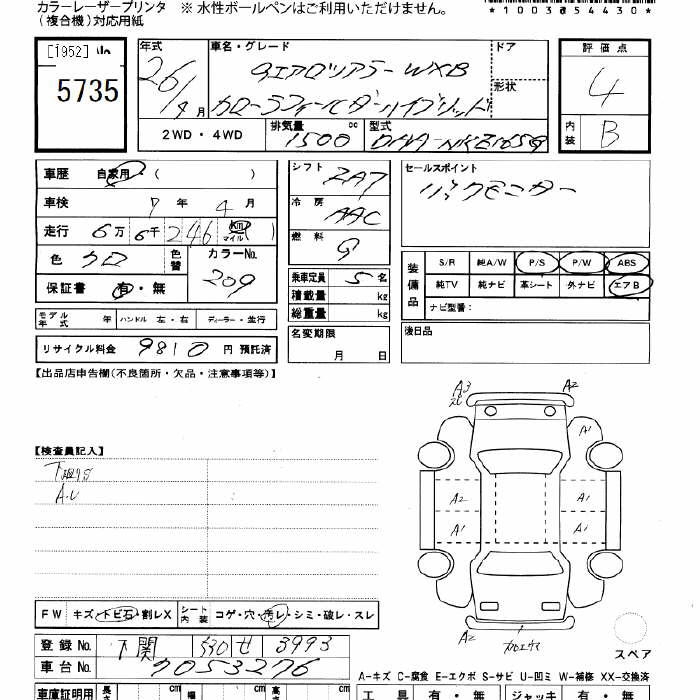 カラーレーザープリンタ ※ 水性ボールペンはご利用いただけません。
(複合機)対応用紙
*1003854430*
[1952]
5735
年式 車名・グレード ドア 評価点
26/9月 GエアロツアラーWXB 4
カローラフィールダーハイブリッド 形状
2WD・4WD 排気量 1500 cc 型式 DAA-NKE165G 内装 B
車歴 自家用・( ) シフト FA7 セールスポイント
車検 7年 9月 冷房 AAC バックモニター
走行 6万 6千 246 (km マイル)
燃料 G
色 クロ 色替 カラーNo. 209
保証書 有・無
乗車定員 5名
積載量 kg
総重量 kg
装備品 S/R 純A/W P/S P/W ABS
純TV 純ナビ 革シート 外ナビ エアB
ナビ型番:
モデル年式 年 ハンドル 左・右 ディーラー・並行
名変期限 月 日
後日品
リサイクル料金 9810円 預託済
【出品店申告欄(不良箇所・欠品・注意事項等)】
A3 A2
A1
【検査員記入】
下廻りS
A.U
A2 A1
A1 A1
FW キズ・トビ石・割レX シート内装 コゲ・穴・汚レ・シミ・破レ・スレ
A2
スペア
登録No. 下関 530 せ 3993
車台No. 7053276
A-キズ C-腐食 E-エクボ S-サビ U-凹ミ W-補修 XX-交換済
車庫証明用 長さ cm 幅 cm 高さ cm 工具 有・無 ジャッキ 有・無